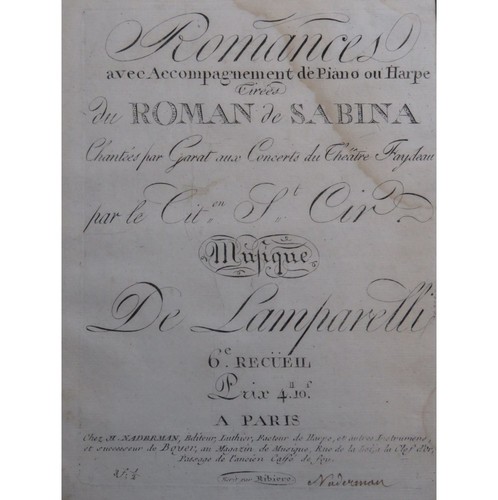 Romances
avec Accompagnement de Piano ou Harpe
Tirées
du ROMAN de SABINA
Chantées par Garat aux Concerts du Théâtre Faydeau
par le Cit.en S.t Cir
Musique
De Lamparelli
6.e RECÜEIL
Prix 4.tt 10.s
A PARIS
Chez H. NADERMAN, Editeur, Luthier, Facteur de Harpe, et autres Instrumens,
et successeur de Boyer, au Magazin de Musique, Rue de la Loi, à la Clef d'Or,
Passage de l'ancien Caffé de foy.
Gravé par Ribiere
Naderman